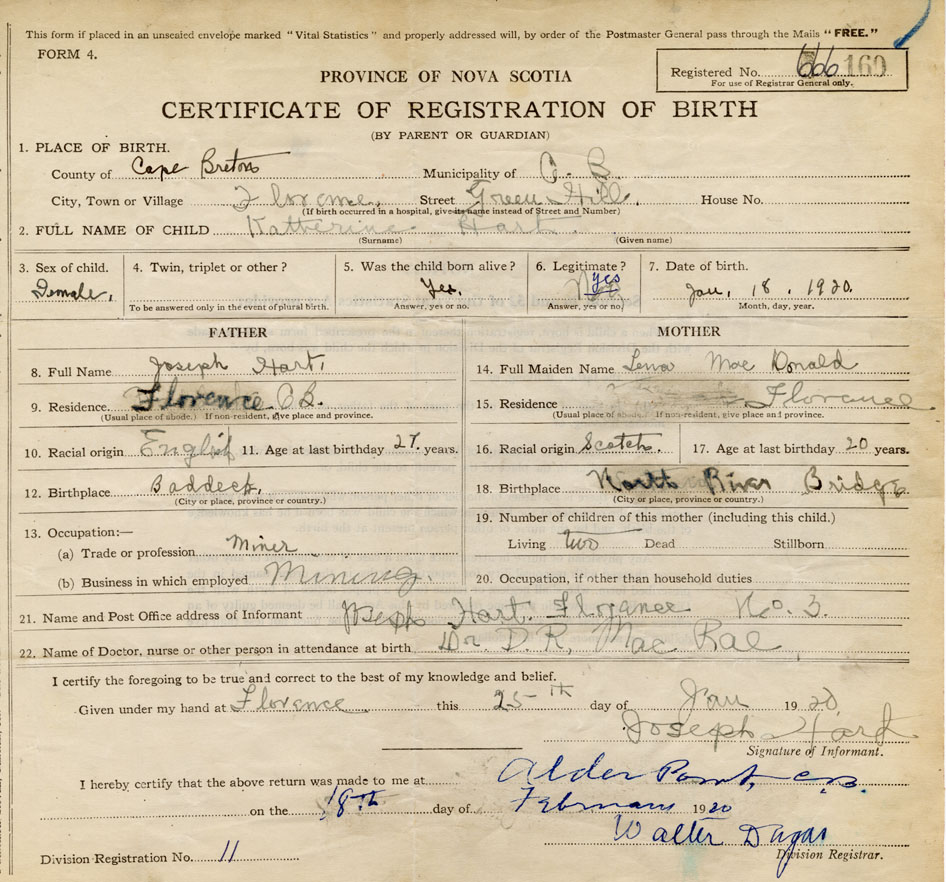 This form if placed in an unsealed envelope marked "Vital Statistics" and properly addressed will, by order of the Postmaster General pass through the Mails "FREE."
FORM 4.
Registered No. 666 160
For use of Registrar General only.
PROVINCE OF NOVA SCOTIA
CERTIFICATE OF REGISTRATION OF BIRTH
(BY PARENT OR GUARDIAN)
1. PLACE OF BIRTH.
County of Cape Breton Municipality of C. B.
City, Town or Village Florence, Street Green Hill. House No.
(If birth occurred in a hospital, give its name instead of Street and Number)
2. FULL NAME OF CHILD Katherine Hart.
(Surname) (Given name)
3. Sex of child. 4. Twin, triplet or other? 5. Was the child born alive? 6. Legitimate? 7. Date of birth.
Female, Yes. Yes Jan, 18. 1920.
To be answered only in the event of plural birth. Answer, yes or no. Answer, yes or no. Month, day, year.
FATHER MOTHER
8. Full Name Joseph Hart, 14. Full Maiden Name Lena Mac Donald
9. Residence Florence C.B. 15. Residence Florance
(Usual place of abode.) If non-resident, give place and province. (Usual place of abode.) If non-resident, give place and province.
10. Racial origin English 11. Age at last birthday 27. years. 16. Racial origin Scotch. 17. Age at last birthday 20 years.
12. Birthplace Baddeck, 18. Birthplace North River Bridge
(City or place, province or country.) (City or place, province or country.)
13. Occupation:— 19. Number of children of this mother (including this child.)
(a) Trade or profession Miner Living two Dead Stillborn
(b) Business in which employed Mining. 20. Occupation, if other than household duties
21. Name and Post Office address of Informant Joseph Hart. Florance No. 3.
22. Name of Doctor, nurse or other person in attendance at birth Dr. D. R. Mac Rae
I certify the foregoing to be true and correct to the best of my knowledge and belief.
Given under my hand at Florence this 25th day of Jan 1920
Joseph Hart
Signature of Informant.
I hereby certify that the above return was made to me at Alder Point, C.B.
on the 18th day of February 1920
Walter Dugas
Division Registrar.
Division Registration No. 11